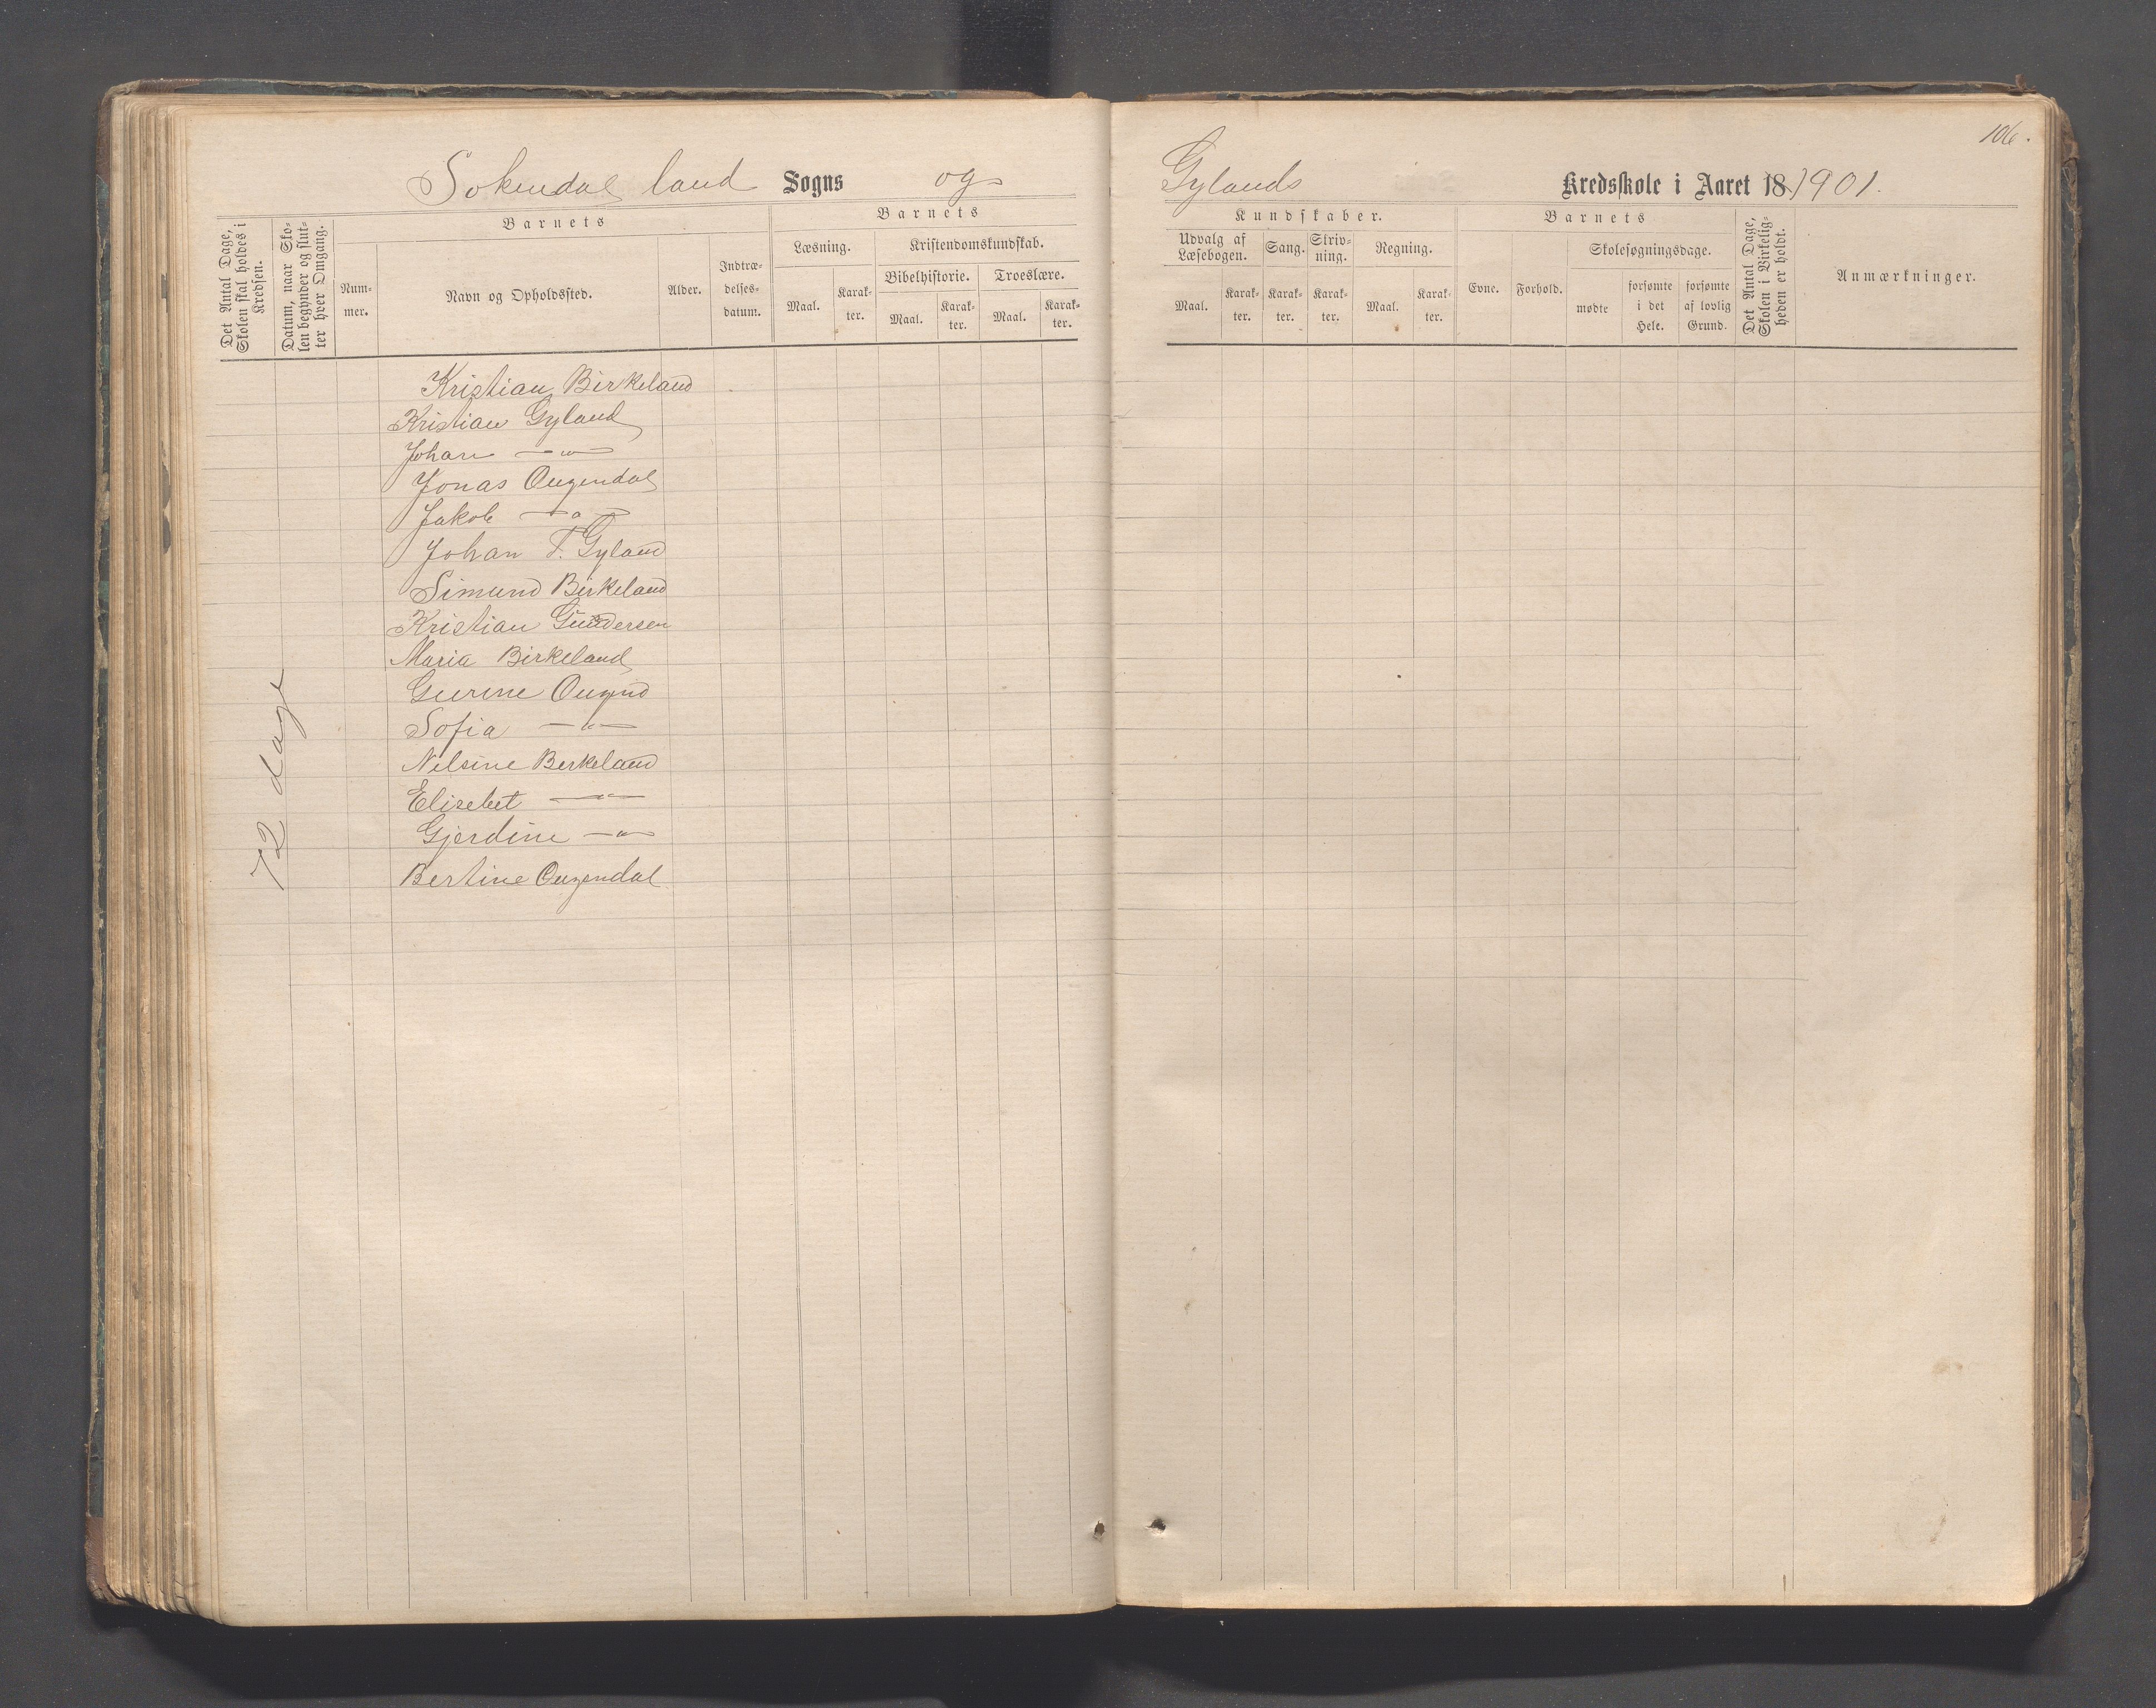 106.
Sokendal land Sogns og Gylands Kredsskole i Aaret 18 1901.
Det Antal Dage, Skolen skal holdes i Kredsen.
Datum, naar Skolen begynder og slutter hver Omgang.
Barnets
Nummer.
Navn og Opholdssted.
Alder.
Indtrædelsesdatum.
Barnets
Læsning.
Maal.
Karakter.
Kristendomskundskab.
Bibelhistorie.
Maal.
Karakter.
Troeslære.
Maal.
Karakter.
Kundskaber.
Udvalg af Læsebogen.
Maal.
Karakter.
Sang.
Karakter.
Skrivning.
Karakter.
Regning.
Maal.
Karakter.
Barnets
Evne.
Forhold.
Skolesøgningsdage.
mødte
forsømte i det Hele.
forsømte af lovlig Grund.
Det Antal Dage, Skolen i Virkeligheden er holdt.
Anmærkninger.
72 dage
Kristian Birkeland
Kristian Gyland
Johan —"—
Jonas Ougendal
Jakob —"—
Johan T. Gyland
Simund Birkeland
Kristian Gundersen
Maria Birkeland
Gurine
Sofia —"—
Nilsine Berkeland
Elisebet —"—
Gjerdine —"—
Bertine Ougendal